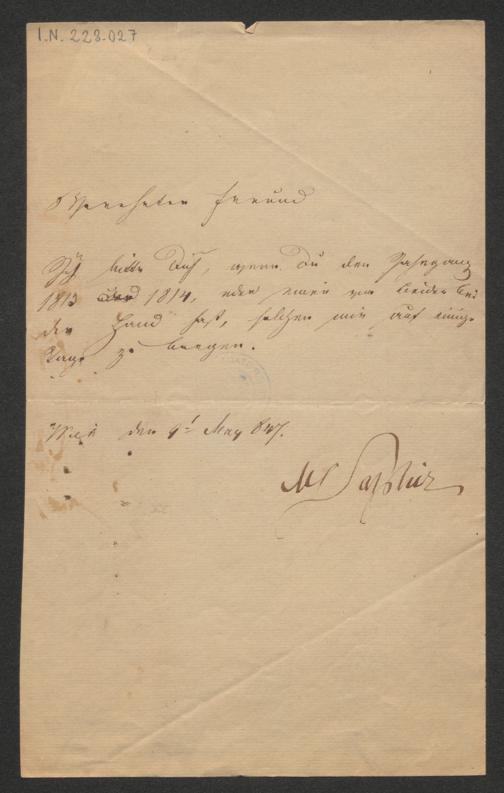 I.N. 228.027
Verehrter Freund
Ich bitte Dich, wenn Du den Jahrgang
1813 oder 1814, oder einen von beiden bei
der Hand hast, solchen mir auf einige
Tage zu borgen.
Wien den 9t May 847.